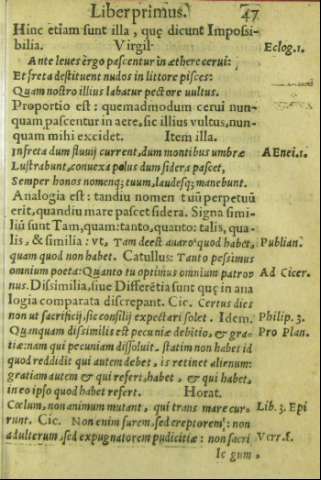 Liber primus. 47
Hinc etiam sunt illa, quę dicunt Impossi-
bilia. Virgil. Eclog.1.
Ante leues ergo pascentur in æthere cerui:
Et freta destituent nudos in littore pisces:
Quam nostro illius labatur pectore uultus.
Proportio est: quemadmodum cerui nun-
quam pascentur in aere, sic illius vultus, nun-
quam mihi excidet. Item illa.
In freta dum fluuij current, dum montibus umbræ AEnei.1.
Lustrabunt, conuexa polus dum sidera pascet,
Semper honos nomenq; tuum, laudesq; manebunt.
Analogia est: tandiu nomen tuū perpetuū
erit, quandiu mare pascet sidera. Signa simi-
liū sunt Tam, quam: tanto, quanto: talis, qua-
lis, & similia: vt, Tam deest auaro quod habet, Publian.
quam quod non habet. Catullus: Tanto pessimus
omnium poeta: Quanto tu optimus omnium patro- Ad Cicer.
nus. Dissimilia, siue Differētia sunt quę in ana
logia comparata discrepant. Cic. Certus dies
non ut sacrificij, sic consilij expectari solet. Idem. Philip. 3.
Quanquam dissimilis est pecuniæ debitio, & gra- Pro Plan.
tiæ: nam qui pecuniam dissoluit, statim non habet id
quod reddidit qui autem debet, is retinet alienum:
gratiam autem & qui refert, habet, & qui habet,
in eo ipso quod habet refert. Horat.
Cœlum, non animum mutant, qui trans mare cur- Lib. 3. Epi
runt. Cic. Non enim furem, sed ereptorem: non
adulterum, sed expugnatorem pudicitiæ: non sacri Verr.1.
le gum,